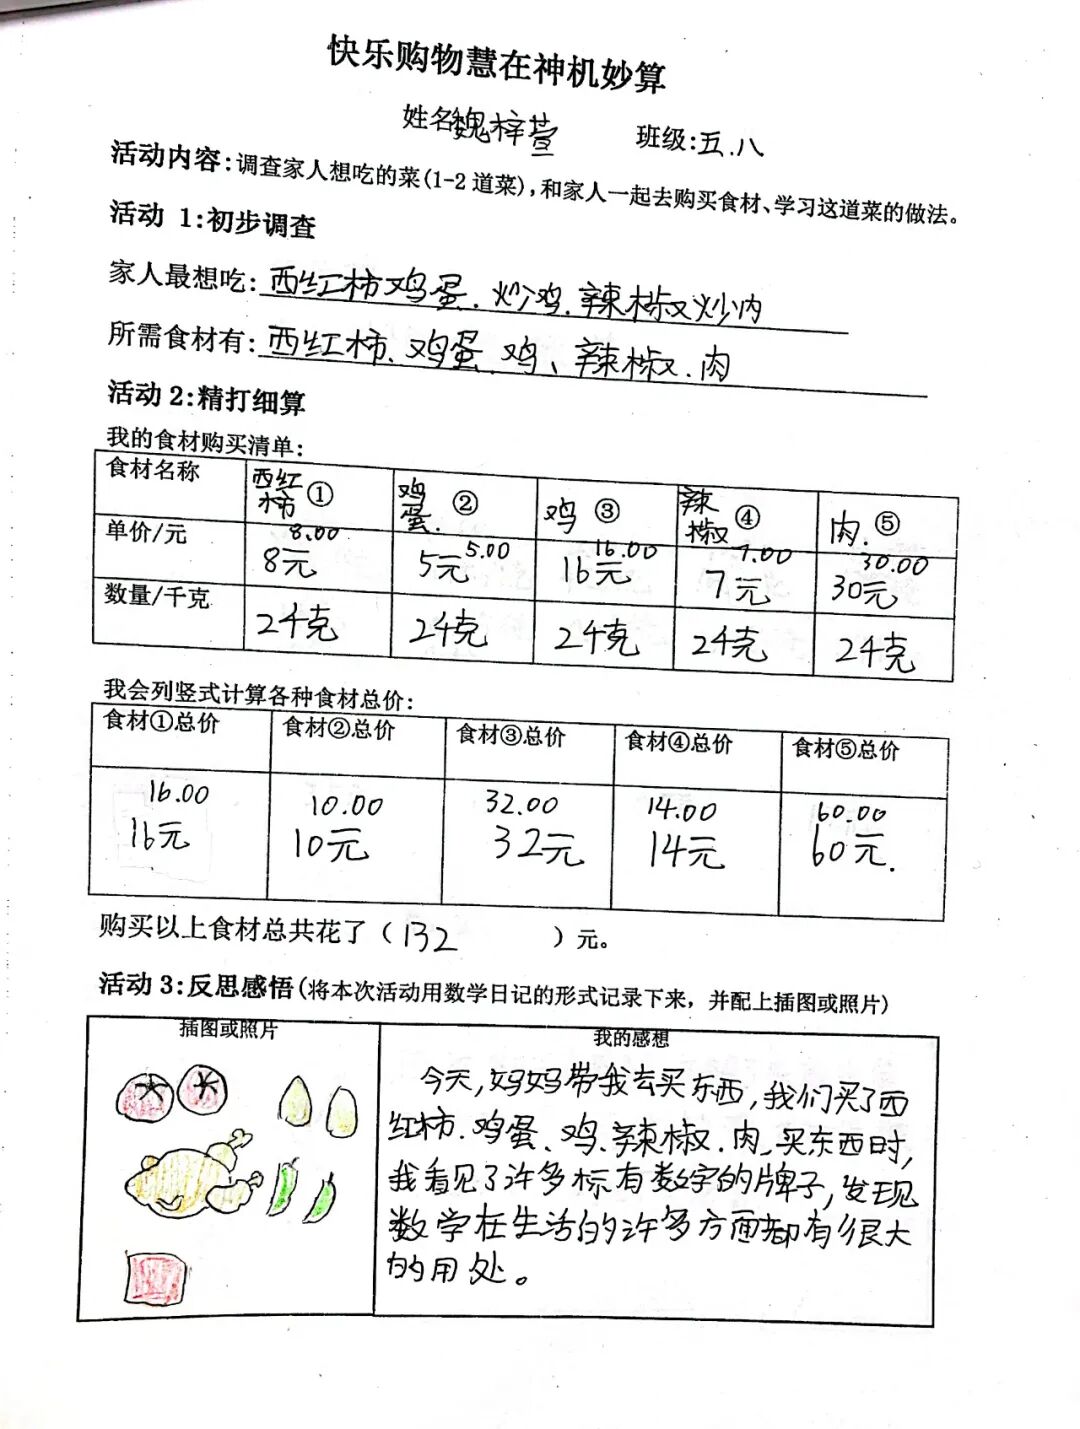 快乐购物慧在神机妙算
姓名魏梓萱 班级:五.八
活动内容:调查家人想吃的菜(1-2道菜),和家人一起去购买食材、学习这道菜的做法。
活动 1:初步调查
家人最想吃:西红柿鸡蛋.炒鸡.辣椒炒肉
所需食材有:西红柿.鸡蛋.鸡、辣椒.肉
活动2:精打细算
我的食材购买清单:
食材名称 西红柿① 鸡蛋.② 鸡③ 辣椒④ 肉.⑤
单价/元 8.00 5.00 16.00 7.00 30.00
8元 5元 16元 7元 30元
数量/千克 2千克 2千克 2千克 2千克 2千克
我会列竖式计算各种食材总价:
食材①总价 食材②总价 食材③总价 食材④总价 食材⑤总价
16.00 10.00 32.00 14.00 60.00
16元 10元 32元 14元 60元.
购买以上食材总共花了(132)元。
活动3:反思感悟(将本次活动用数学日记的形式记录下来，并配上插图或照片)
插图或照片 我的感想
今天,妈妈带我去买东西,我们买了西
红柿.鸡蛋、鸡、辣椒.肉.买东西时,
我看见了许多标有数字的牌子,发现
数学在生活的许多方面都有很大
的用处。